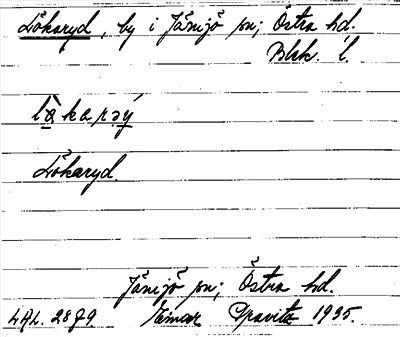 Lökaryd, by i Jämjö sn; Östra hd.
Blek. l.
Lökaryd.
Jämjö sn; Östra hd.
LAL. 2879. Einar Gravitz 1935.